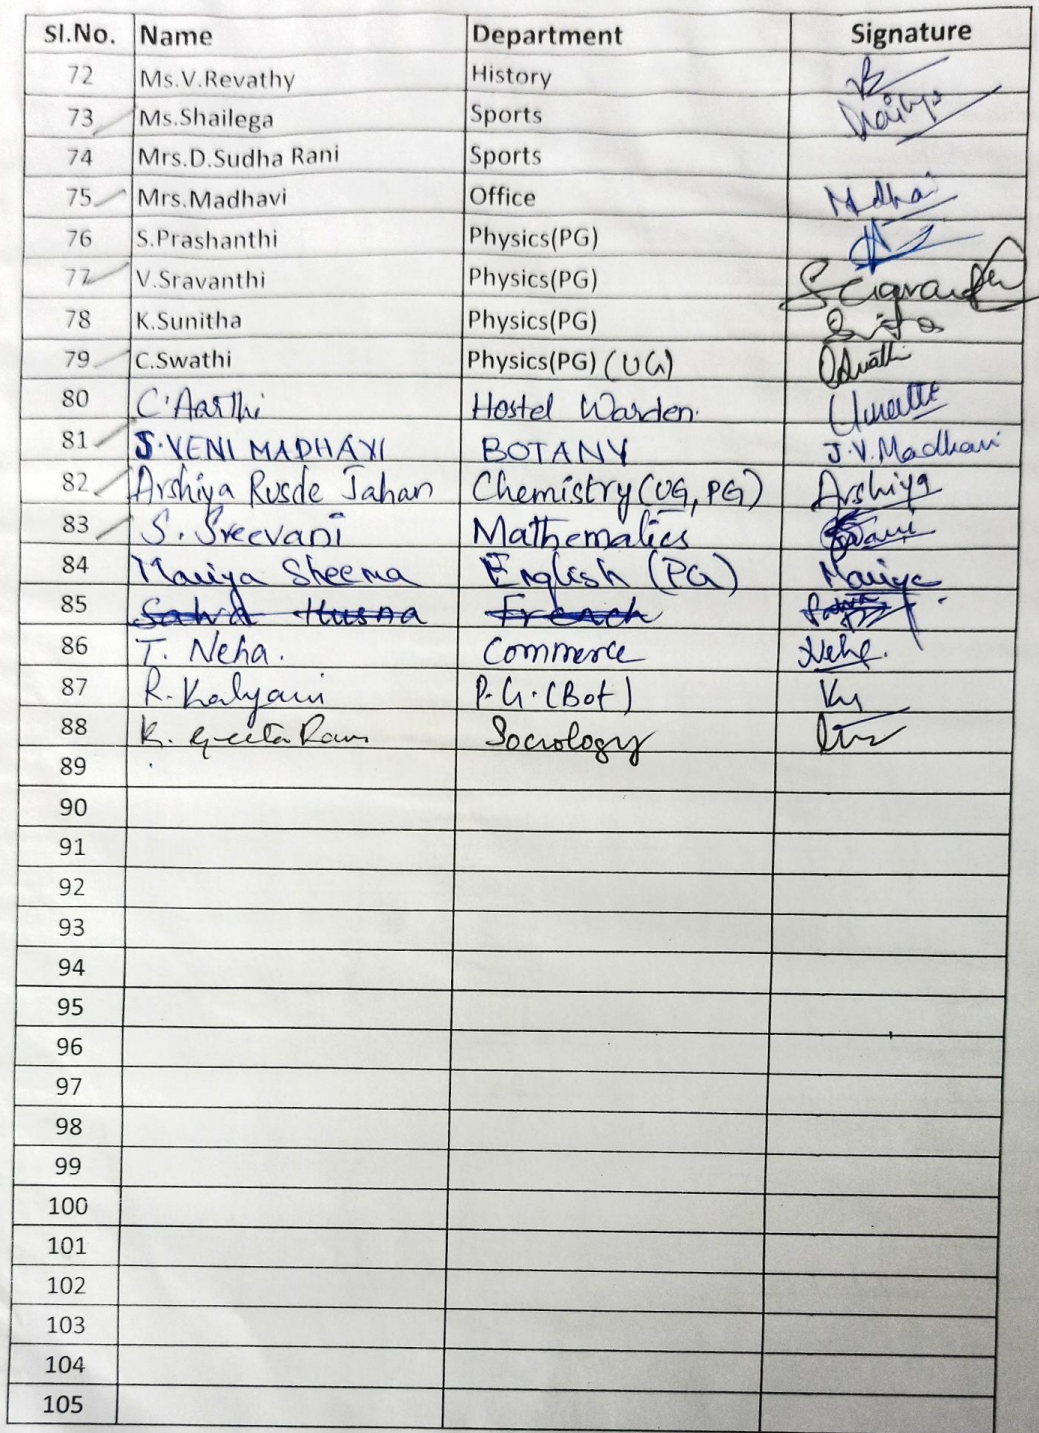 Sl.No. Name Department Signature
72 Ms.V.Revathy History
73 Ms.Shailega Sports
74 Mrs.D.Sudha Rani Sports
75 Mrs.Madhavi Office
76 S.Prashanthi Physics(PG)
77 V.Sravanthi Physics(PG)
78 K.Sunitha Physics(PG)
79 C.Swathi Physics(PG) (UG)
80 C.Aarthi Hostel Warden.
81 J.VENI MADHAVI BOTANY J.V.Madhavi
82 Arshiya Rusde Jahan Chemistry (UG, PG) Arshiya
83 S. Sreevani Mathematics
84 Mariya Sheema English (PG) Mariya
85 Husna French
86 T. Neha. Commerce Neha.
87 R. Kalyani P.G. (Bot)
88 K. Geeta Rani Sociology
89
90
91
92
93
94
95
96
97
98
99
100
101
102
103
104
105